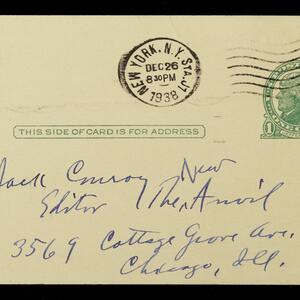 NEW YORK, N.Y. STA. J1
DEC 26
8 30 PM
1938
1
THIS SIDE OF CARD IS FOR ADDRESS
Jack Conroy New
Editor The Anvil
3569 Cottage Grove Ave.
Chicago, Ill.